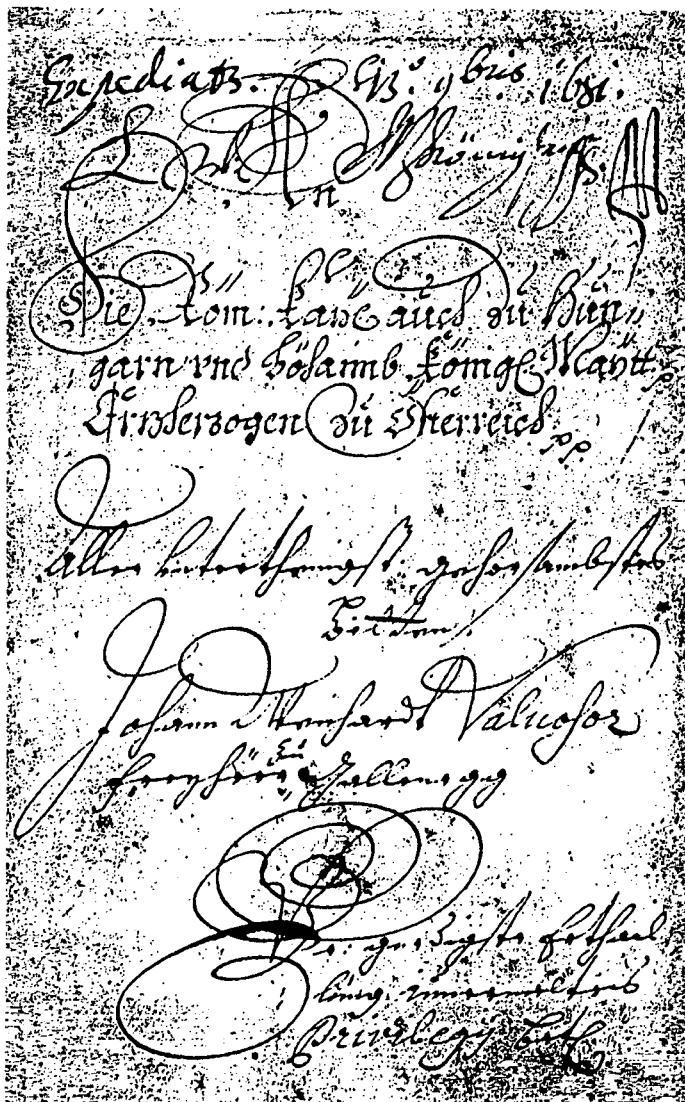 Expediatr. 9bris 1681.
An
Die Röm: Kaÿ: auch zu Hun=
garn vnd Böhaimb Königl: Maÿtt: pp.
Ertzherzogen zu Österreich pp.
Aller vnterthenigst gehorsambstes
Bitten
Johann Weichardt Valuasor
freyherr zu Gallenegg
gnedigste Erthail
lung
Privilegij betr.